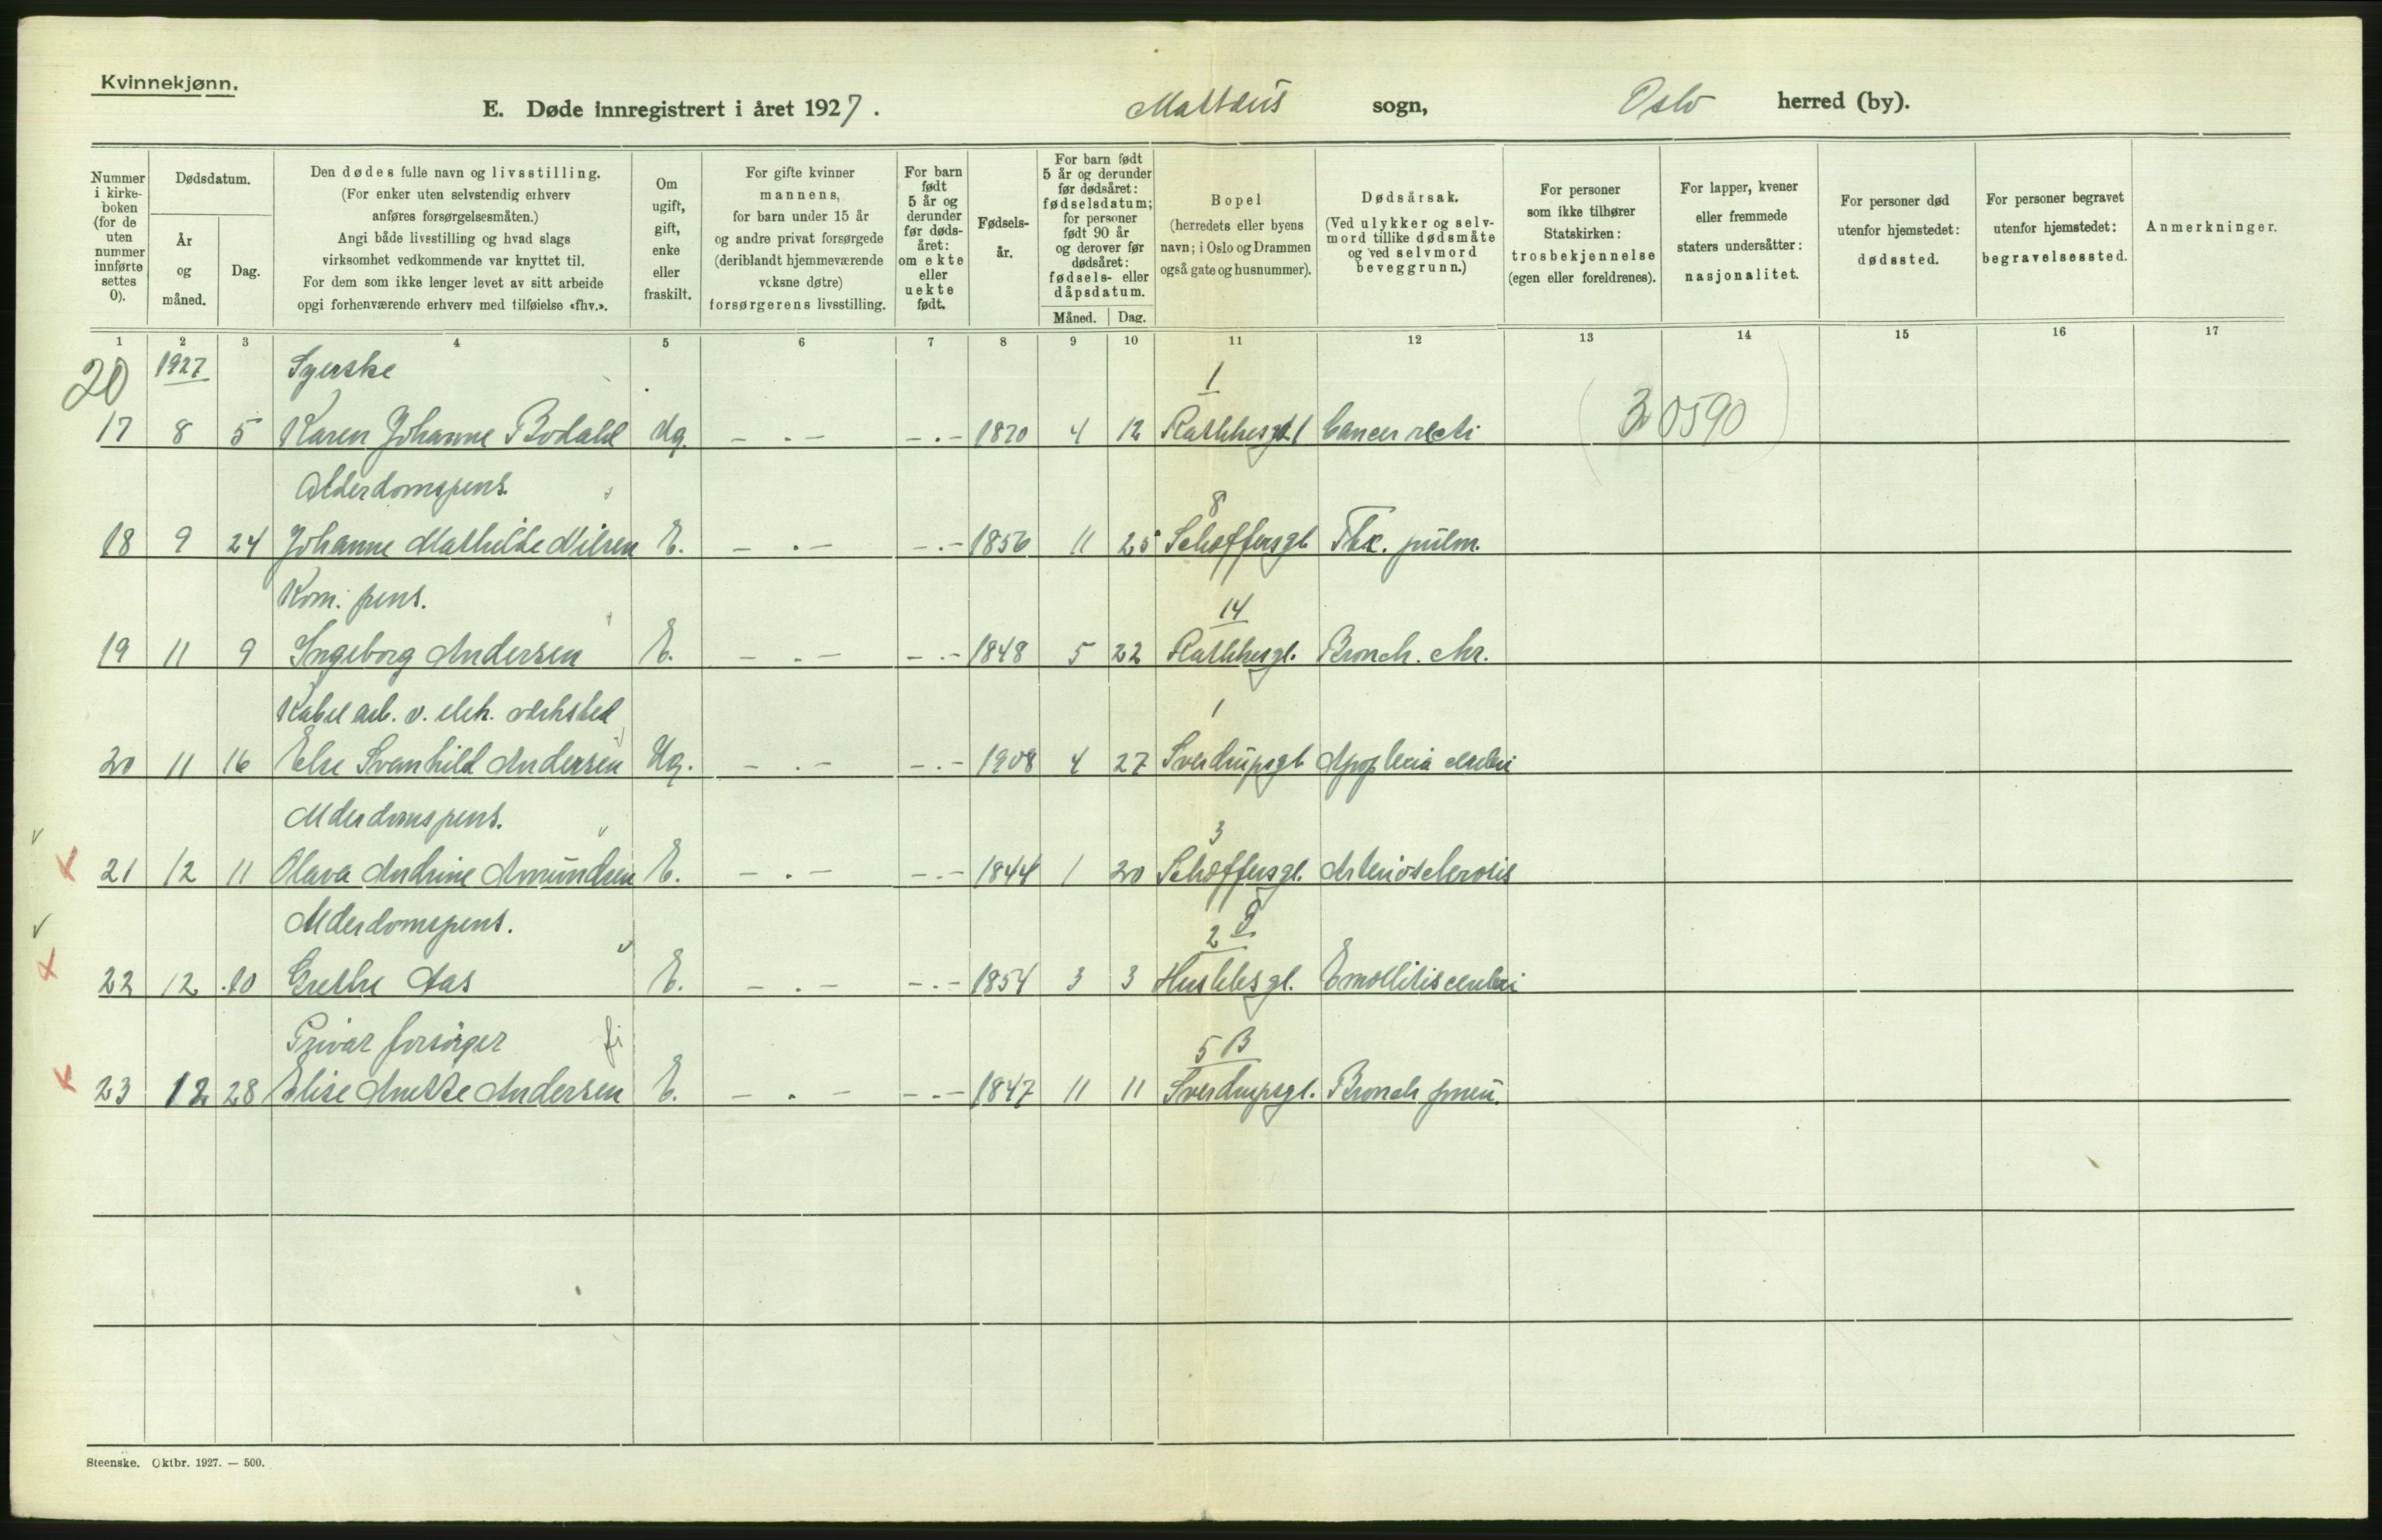 Kvinnekjønn.
E. Døde innregistrert i året 1927. Mattæus sogn, Oslo herred (by).
Nummer i kirkeboken (for de uten nummer innførte settes 0).
Dødsdatum.
År og måned.
Dag.
Den dødes fulle navn og livsstilling.
(For enker uten selvstendig erhverv
anføres forsørgelsesmåten.)
Angi både livsstilling og hvad slags
virksomhet vedkommende var knyttet til.
For dem som ikke lenger levet av sitt arbeide
opgi forhenværende erhverv med tilføielse «fhv.».
Om ugift, gift, enke eller fraskilt.
For gifte kvinner
mannens,
for barn under 15 år
og andre privat forsørgede
(deriblandt hjemmeværende
voksne døtre)
forsørgerens livsstilling.
For barn født 5 år og derunder før dødsåret: om ekte eller uekte født.
Fødselsår.
For barn født
5 år og derunder
før dødsåret:
fødselsdatum;
for personer
født 90 år
og derover før
dødsåret:
fødsels- eller
dåpsdatum.
Måned. Dag.
Bopel
(herredets eller byens
navn; i Oslo og Drammen
også gate og husnummer).
Dødsårsak.
(Ved ulykker og selv-
mord tillike dødsmåte
og ved selvmord
beveggrunn.)
For personer
som ikke tilhører
Statskirken:
trosbekjennelse
(egen eller foreldrenes).
For lapper, kvener
eller fremmede
staters undersåtter:
nasjonalitet.
For personer død
utenfor hjemstedet:
dødssted.
For personer begravet
utenfor hjemstedet:
begravelsessted.
Anmerkninger.
1 2 3 4 5 6 7 8 9 10 11 12 13 14 15 16 17
20 1927 Syerske 1
17 8 5 Karen Johanne Bodahl Ug. - . - - . - 1870 4 12 Rathkesgt 1 Cancer recti (30590)
Alderdomspens. 8
18 9 24 Johanne Mathilde Nilsen E. - . - - . - 1856 11 25 Schøffersgt Tbc. pulm.
Kom. pens. 14
19 11 9 Ingeborg Andersen E. - . - - . - 1848 5 22 Rathkesgt. Bronch. chr.
Kabel arb. v. elek. verksted 1
20 11 16 Else Svanhild Andersen Ug. - . - - . - 1908 4 27 Sverdrupsgt Apoplexia cerebri
Alderdomspens. 3
21 12 11 Olava Andrine Amundsen E. - . - - . - 1844 1 20 Schøffersgt. Arteriosclerosis
Alderdomspens. 2
22 12 10 Grethe Aas E. - . - - . - 1854 3 3 Herslebsgt. Emollitis cerebri
Privat forsörget 5 B
23 12 28 Elise Anette Andersen E. - . - - . - 1847 11 11 Sverdrupsgt. Bronch pneu.
Steenske. Oktbr. 1927. — 500.